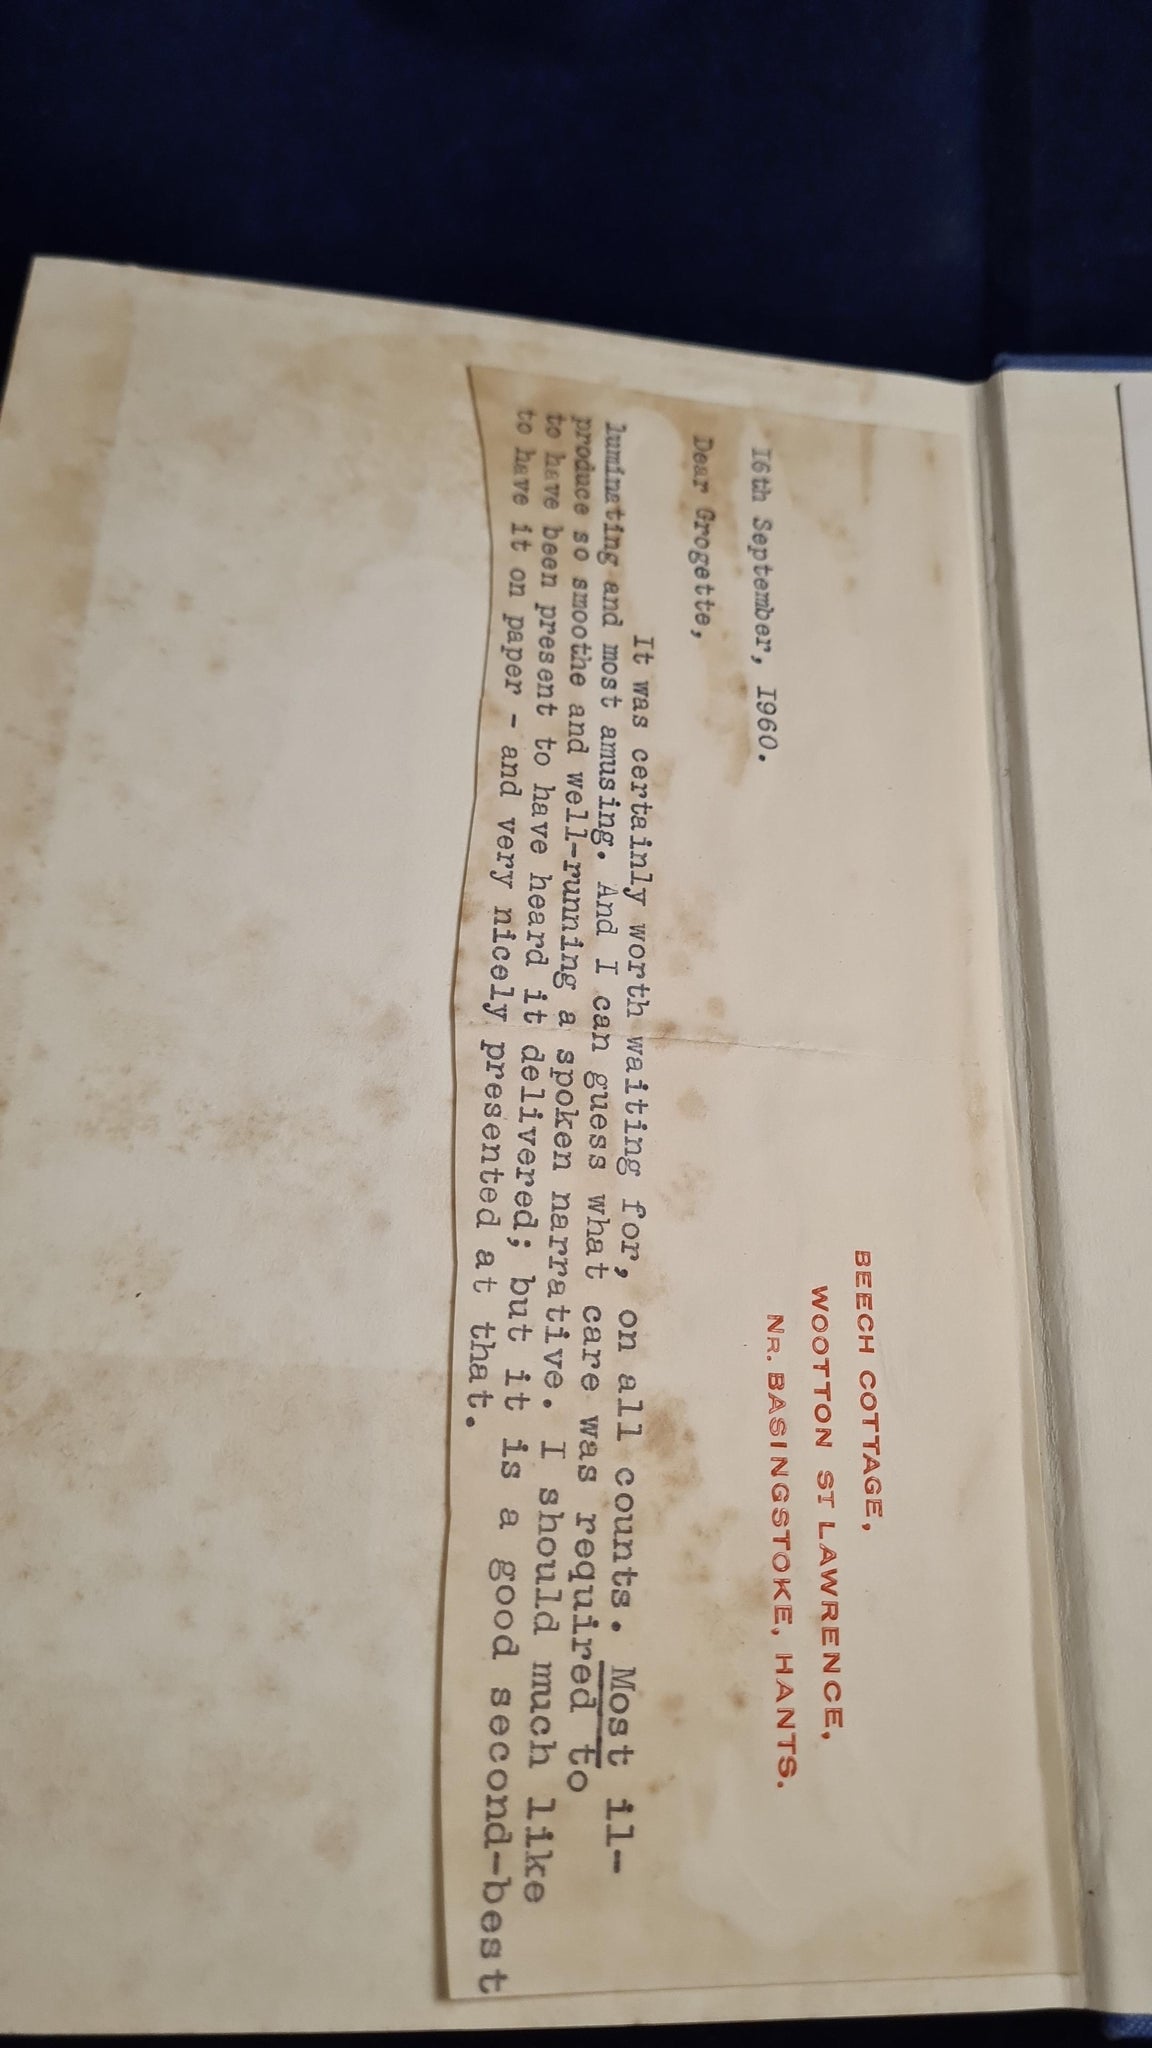 BEECH COTTAGE,
WOOTTON ST LAWRENCE,
NR. BASINGSTOKE, HANTS.
16th September, 1960.
Dear Grogette,
It was certainly worth waiting for, on all counts. Most il-
luminating and most amusing. And I can guess what care was required to
produce so smoothe and well-running a spoken narrative. I should much like
to have been present to have heard it delivered; but it is a good second-best
to have it on paper - and very nicely presented at that.